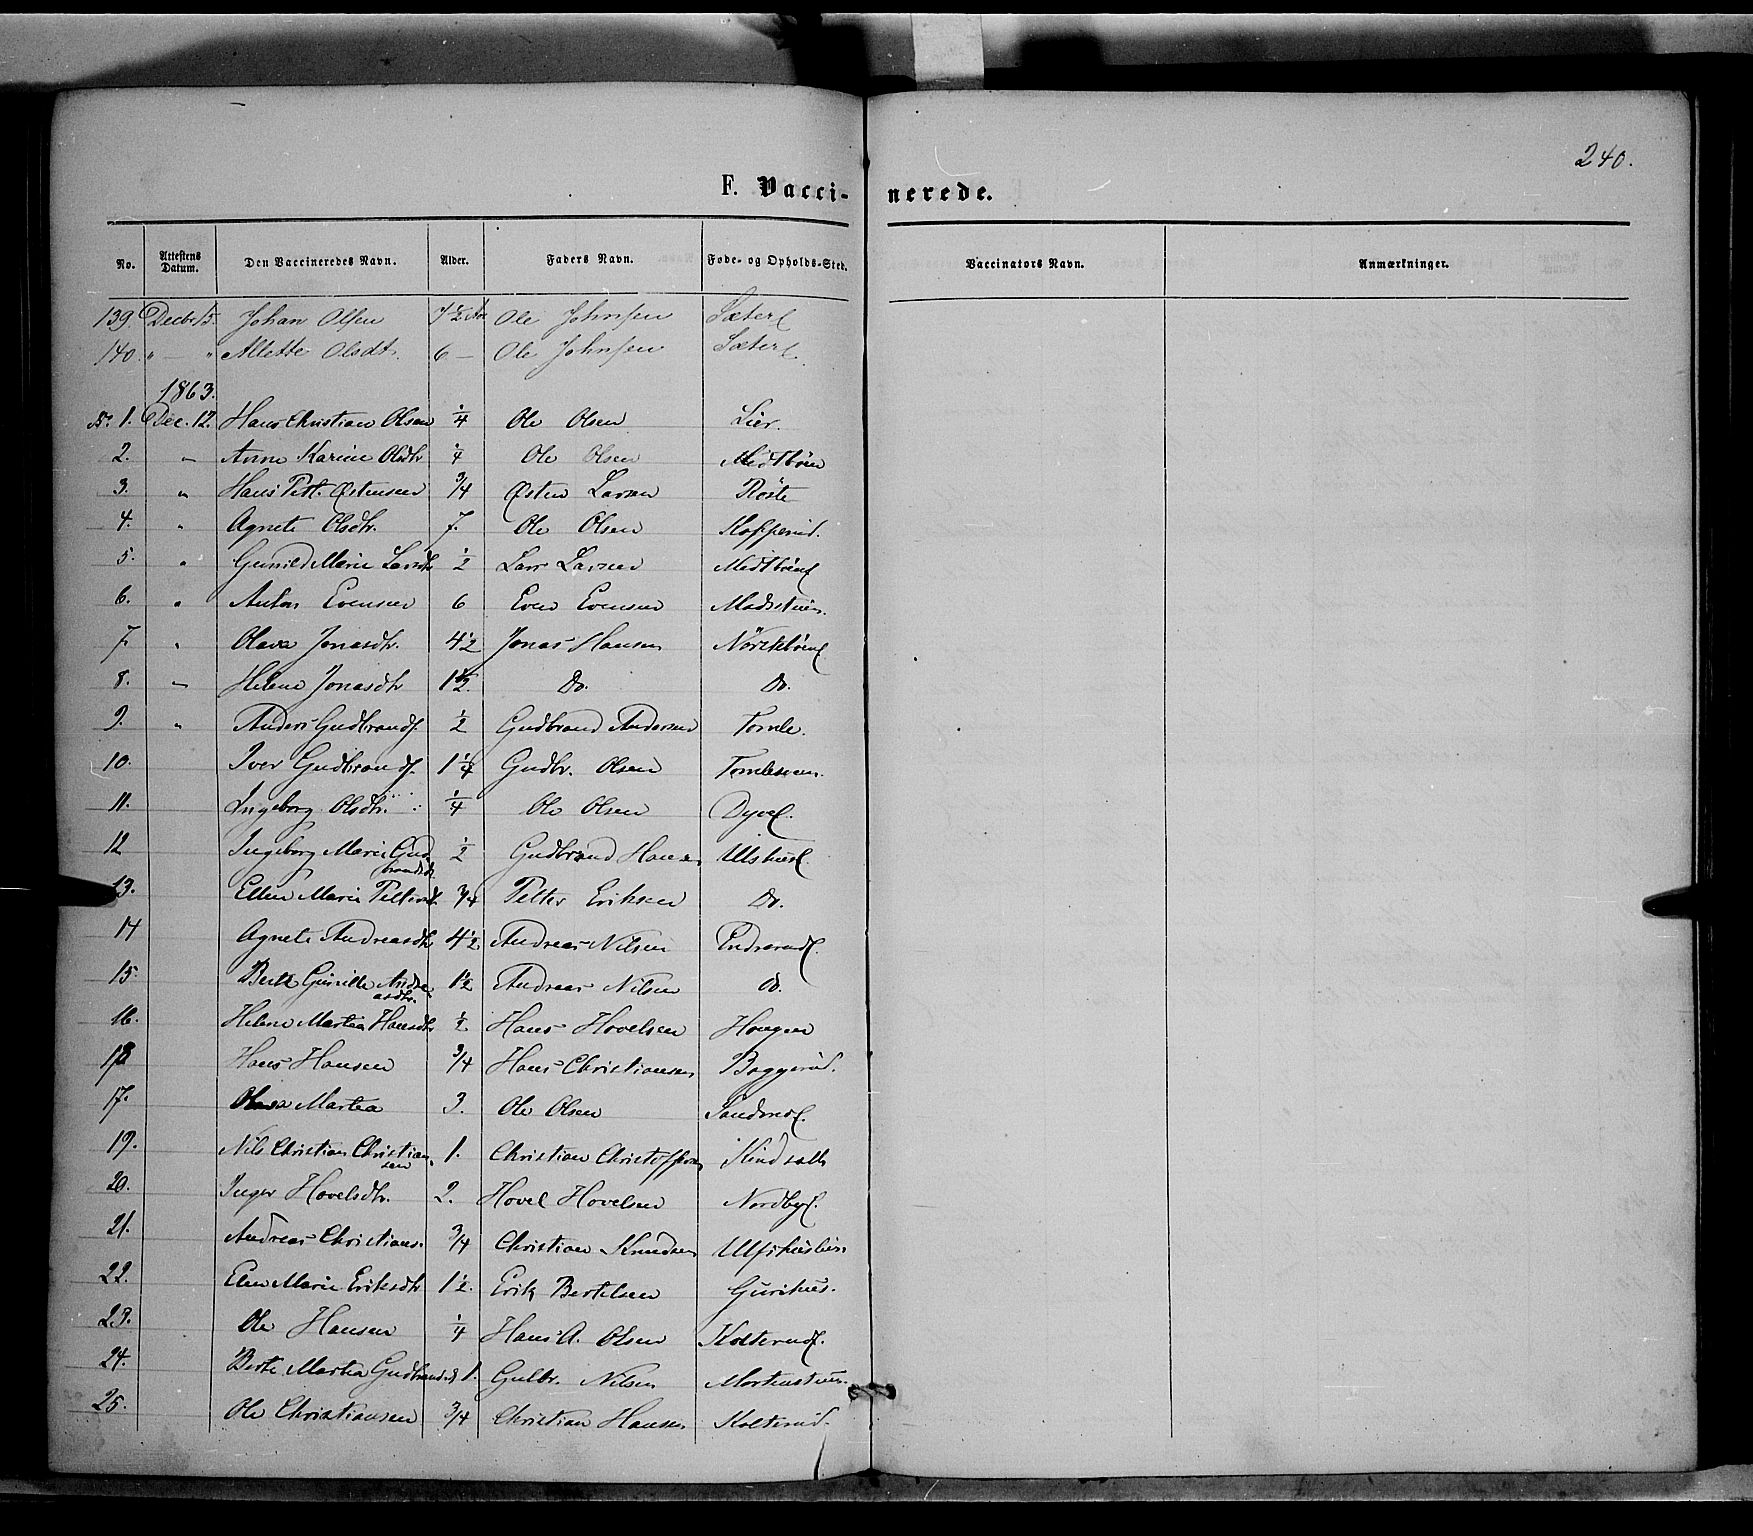 240.
F. Vaccinerede.
No. Attestens Datum. Den Vaccineredes Navn. Alder. Faders Navn. Føde- og Opholds-Sted. Vaccinators Navn. Anmærkninger.
139. Decbr 15. Johan Olsen 7½ Aar Ole Johnsen Sæter
140. " — " Alette Olsdtr. 6 — Ole Johnsen Sæter
1863.
1. Dec. 12. Hans Christian Olsen ¼ Ole Olsen Lier.
2. " Anne Karine Olsdtr ¼ Ole Olsen Midtböen
3. " Hans Østensen ¾ Østen Larsen Röste
4. " Agnete Olsdtr. 7. Ole Olsen Kopperud.
5. " Gunild Marie Larsdtr ½ Lars Larsen Midtböen
6. " Anton Evensen 6 Even Evensen Madsstuen.
7. " Olava Jonasdtr. 4½ Jonas Hansen
8. " Helene Jonasdtr 1½. Do. Do.
9. " Anders Gudbrands. ½ Gudbrand Andersen Tomle.
10. Iver Gudbrands. 1¼ Gudbr. Olsen
11. Ingeborg Olsdtr. ¼ Ole Olsen
12 Ingeborg Marie Gudbrandsdtr ½ Gudbrand Hansen
13. Ellen Marie Pettersdtr ¾ Petter Eriksen Do.
14 Agnete Andreasdtr 4½ Andreas Nilsen Endrerud.
15. Berte Gunille Andreasdtr. 1½ Andreas Nilsen Do.
16. Helene Martea Hansdtr ½ Hans Hovelsen Hougen
18 Hans Hansen ¾ Hans Christiansen Baggerud.
17. Olava Martea 3. Ole Olsen
19. Nils Christian Christiansen 1. Christian Christoffersen
20. Inger Hovelsdtr. 2. Hovel Hovelsen Nordby.
21. Andreas Christians. ¾ Christian Knudsen
22. Elen Marie Eriksdtr 1½. Erik Bertelsen Gurihus.
23. Ole Hansen ¼ Hans A. Olsen Kolterud.
24. Berte Martea Gudbrandsd 1. Gulbr. Nilsen Mortenstuen.
25. Ole Christiansen ¾ Christian Hansen Kolterud.